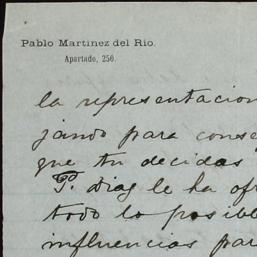 Pablo Martinez del Rio.
Apartado, 250.
la representacion
jando para conse
que tu decidas
P. Diaz le ha ofr
todo lo posible
influencias par